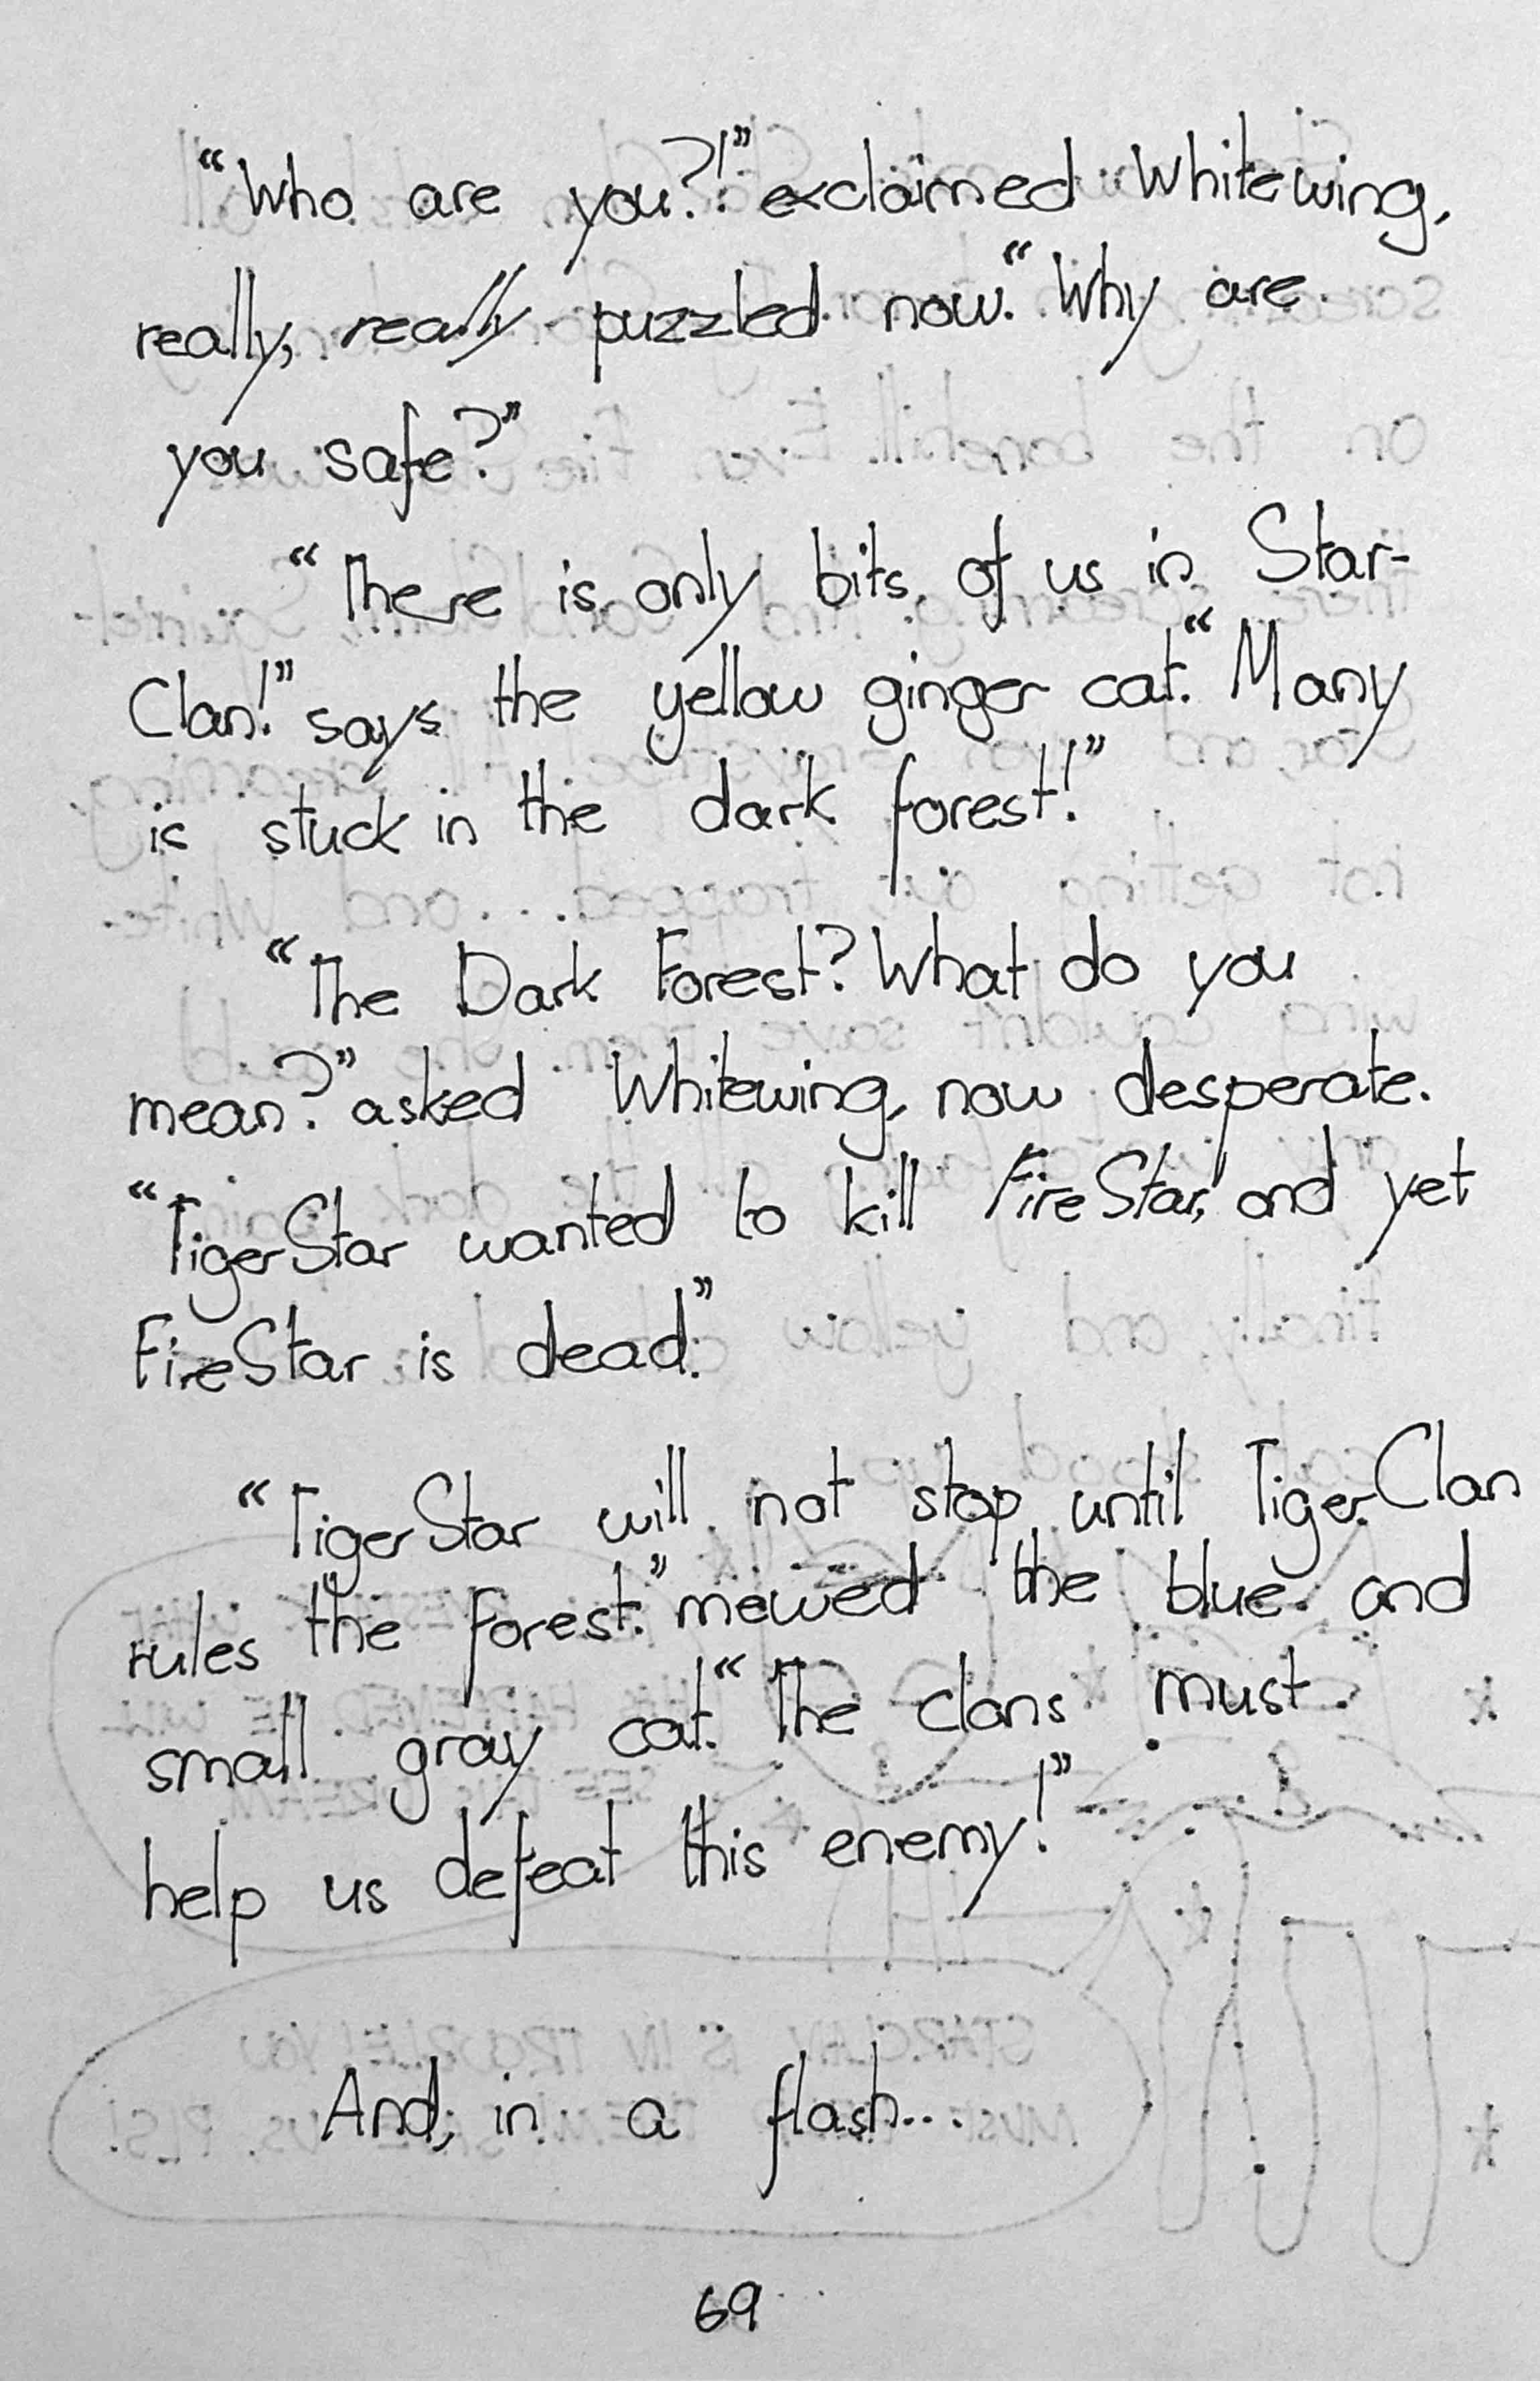 "Who are you?!" exclaimed Whitewing,
really, really puzzled now. "Why are
you safe?"
"There is only bits of us in Star-
Clan!" says the yellow ginger cat. "Many
is stuck in the dark forest!"
"The Dark Forest? What do you
mean?" asked Whitewing, now desperate.
"TigerStar wanted to kill FireStar, and yet
FireStar is dead."
"TigerStar will not stop until TigerClan
rules the forest." mewed the blue and
small gray cat. "The clans must
help us defeat this enemy!"
And, in a flash...
69